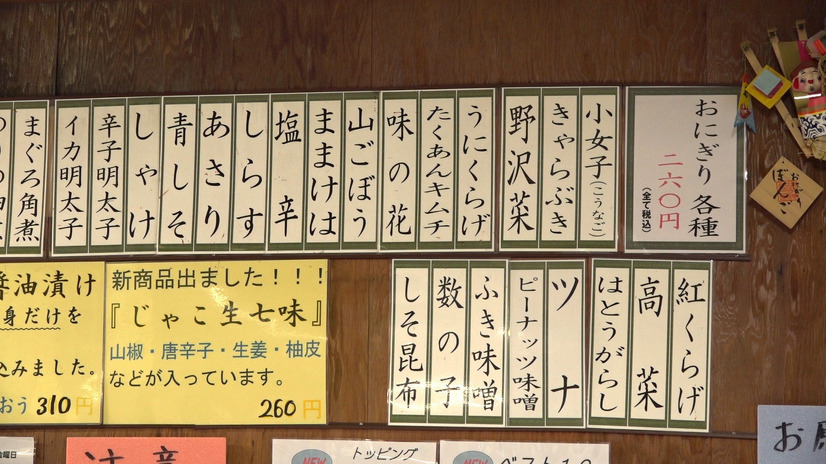 おにぎり 各種
二六〇円
(全て税込)
小女子(こうなご)
きゃらぶき
野沢菜
うにくらげ
たくあんキムチ
味の花
山ごぼう
ままけは
塩辛
しらす
あさり
青しそ
しゃけ
辛子明太子
イカ明太子
まぐろ角煮
紅くらげ
高菜
はとうがらし
ツナ
ピーナッツ味噌
ふき味噌
数の子
しそ昆布
新商品出ました!!!
『じゃこ生七味』
山椒・唐辛子・生姜・柚皮
などが入っています。
260円
醤油漬け
身だけを
込みました。
おう 310円
ぼんご
NEW
トッピング
NEW